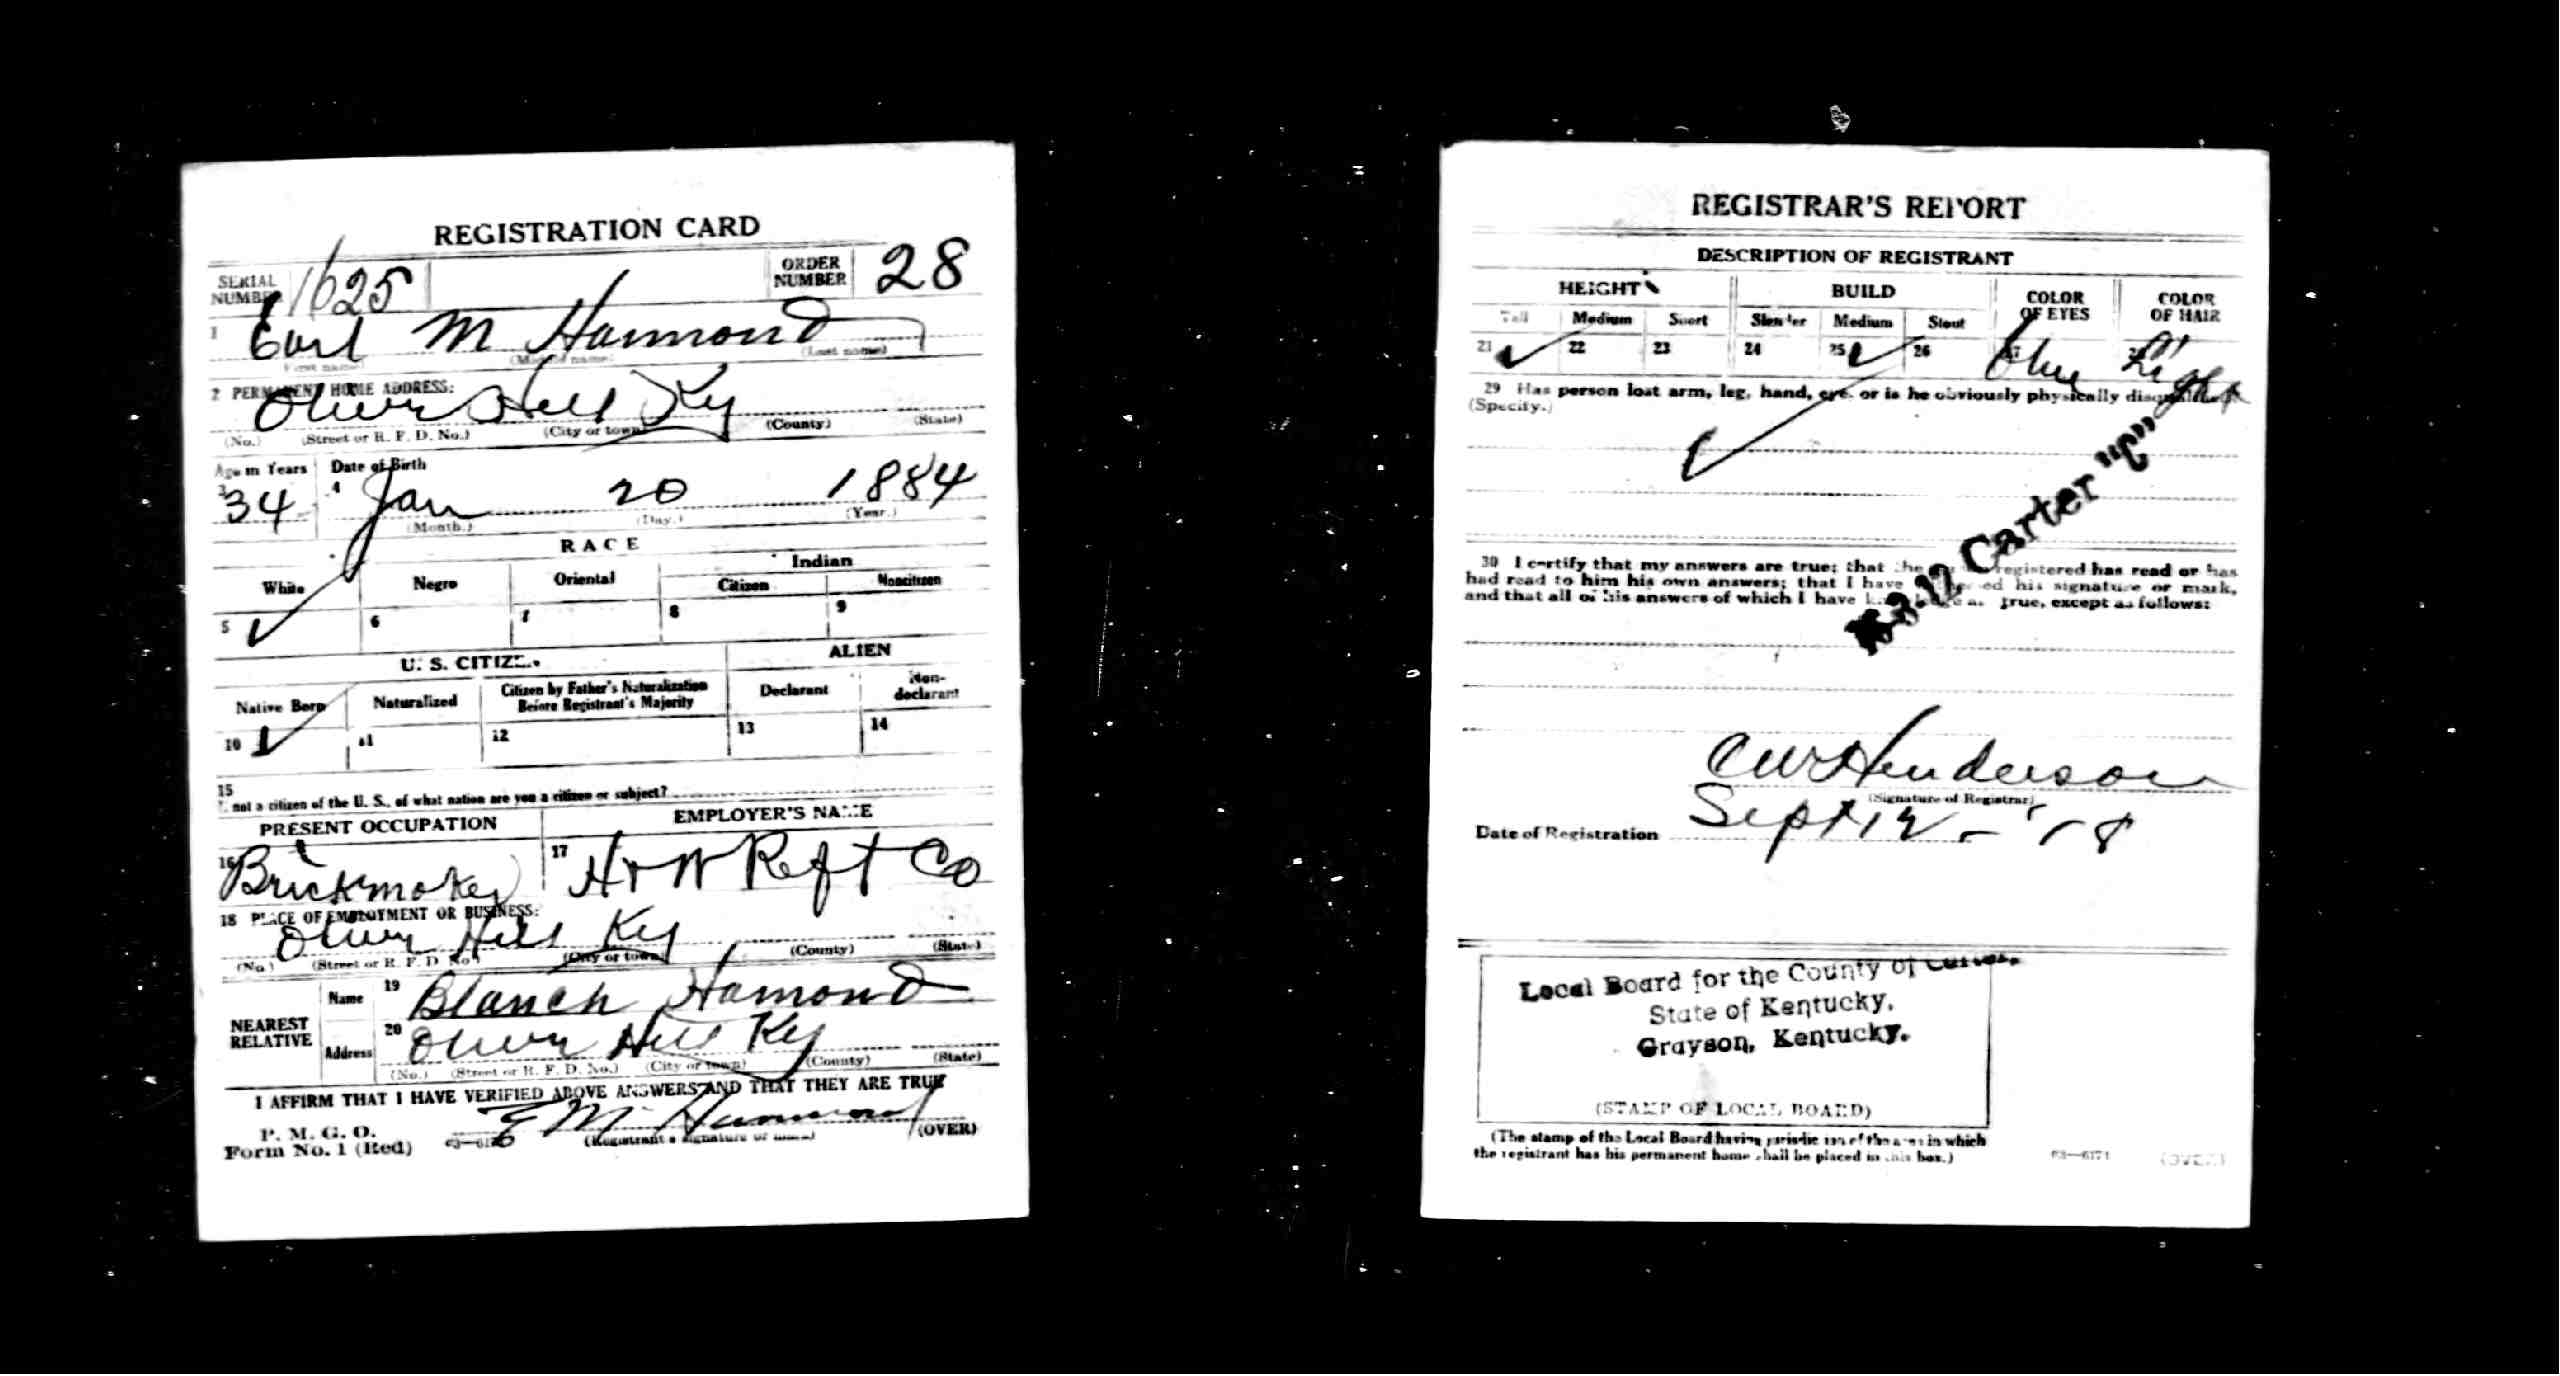 REGISTRATION CARD
SERIAL NUMBER 1625 ORDER NUMBER 28
1 Earl M Hammond
(First name) (Middle name) (Last name)
2 PERMANENT HOME ADDRESS:
Oliver Hill Ky
(No.) (Street or R. F. D. No.) (City or town) (County) (State)
Age in Years Date of Birth
3 34 4 Jan 20 1884
(Month.) (Day.) (Year.)
RACE
White Negro Oriental Indian
Citizen Noncitizen
5 ✓ 6 7 8 9
U. S. CITIZEN ALIEN
Native Born Naturalized Citizen by Father's Naturalization Before Registrant's Majority Declarant Non-declarant
10 ✓ 11 12 13 14
15
If not a citizen of the U. S., of what nation are you a citizen or subject?
PRESENT OCCUPATION EMPLOYER'S NAME
16 Brickmaker 17 H + W Reft Co
18 PLACE OF EMPLOYMENT OR BUSINESS:
Oliver Hill Ky
(No.) (Street or R. F. D. No.) (City or town) (County) (State)
NEAREST RELATIVE
Name 19 Blanch Hamond
Address 20 Oliver Hill Ky
(No.) (Street or R. F. D. No.) (City or town) (County) (State)
I AFFIRM THAT I HAVE VERIFIED ABOVE ANSWERS AND THAT THEY ARE TRUE
P. M. G. O.
Form No. 1 (Red) E M Hammond
(Registrant's signature or mark) (OVER)
REGISTRAR'S REPORT
DESCRIPTION OF REGISTRANT
HEIGHT BUILD COLOR OF EYES COLOR OF HAIR
Tall Medium Short Slender Medium Stout
21 ✓ 22 23 24 25 ✓ 26 27 Blue 28 Light
29 Has person lost arm, leg, hand, eye, or is he obviously physically disqualified?
(Specify.)
✓
16-3-12 Carter "C"
30 I certify that my answers are true; that the person registered has read or has
had read to him his own answers; that I have witnessed his signature or mark,
and that all of his answers of which I have knowledge are true, except as follows:
C W Henderson
(Signature of Registrar)
Date of Registration Sept 12 - '18
Local Board for the County of Carter,
State of Kentucky,
Grayson, Kentucky.
(STAMP OF LOCAL BOARD)
(The stamp of the Local Board having jurisdiction of the area in which
the registrant has his permanent home shall be placed in this box.)
63—6171 (OVER)